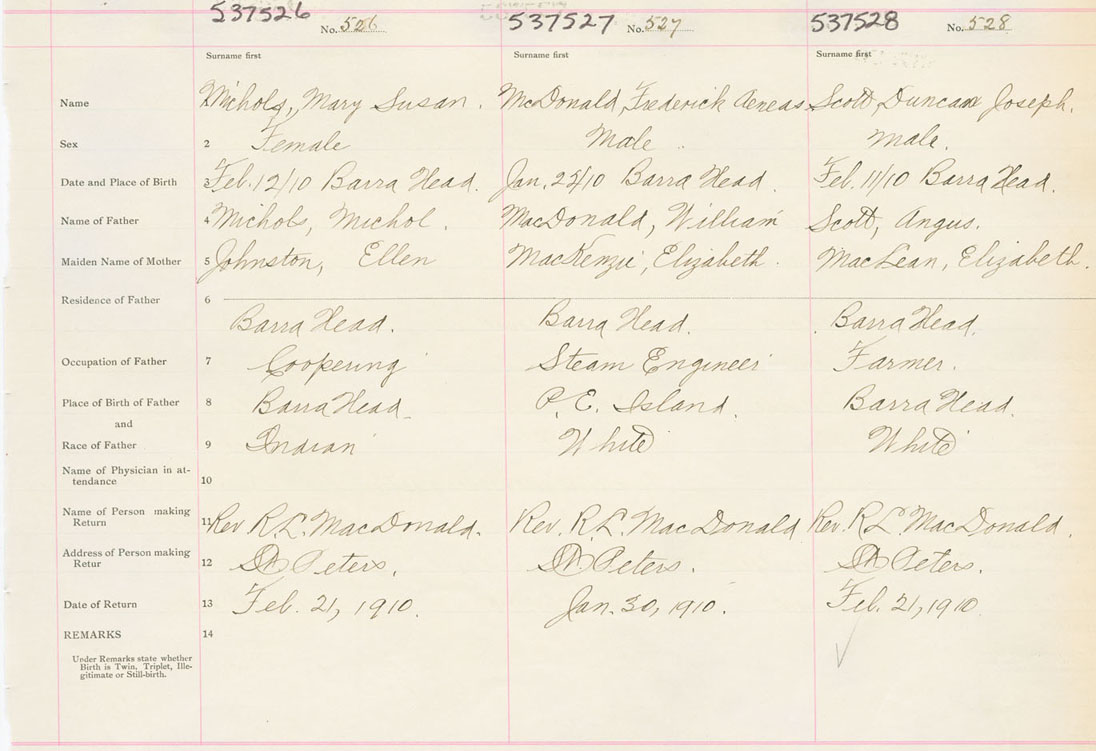 537526 No. 526 537527 No. 527 537528 No. 528
Surname first Surname first Surname first
Name 1 Nichols, Mary Susan. McDonald, Frederick Aeneas Scott, Duncan Joseph.
Sex 2 Female Male. Male.
Date and Place of Birth 3 Feb. 12/10 Barra Head. Jan. /10 Barra Head. Feb. 11/10 Barra Head.
Name of Father 4 Nichols, Nichol. MacDonald, William Scott, Angus.
Maiden Name of Mother 5 Johnston, Ellen MacKenzie, Elizabeth. MacLean, Elizabeth.
Residence of Father 6
Barra Head. Barra Head. Barra Head.
Occupation of Father 7 Coopering Steam Engineer Farmer.
Place of Birth of Father 8 Barra Head P. E. Island. Barra Head.
and
Race of Father 9 Indian White White
Name of Physician in at-
tendance 10
Name of Person making
Return 11 Rev R. L. MacDonald. Rev. R. L. MacDonald Rev. R. L. MacDonald.
Address of Person making
Retur 12 St Peters. St Peters. St Peters.
Date of Return 13 Feb. 21, 1910. Jan. 30, 1910. Feb. 21, 1910
REMARKS 14
Under Remarks state whether
Birth is Twin, Triplet, Ille-
gitimate or Still-birth.